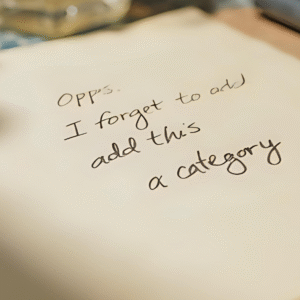 Opps.
I forget to add
add this
a category